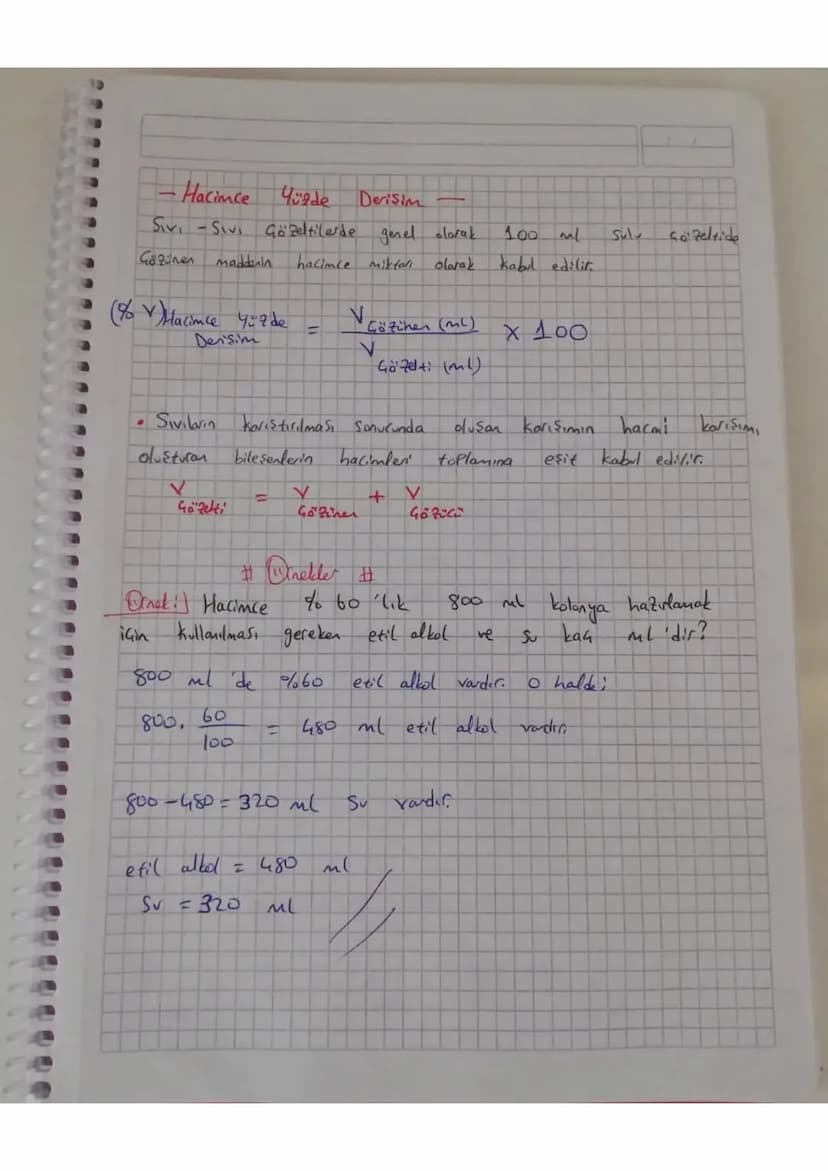 — Hacimce Yüzde Derişim —
Sıvı - Sıvı Çözeltilerde genel olarak 100 ml sulu çözeltide
Çözünen maddenin hacimce miktarı olarak kabul edilir.
(% V) Hacimce Yüzde Derişim = V Çözünen (mL) / V Çözelti (ml) x 100
• Sıvıların karıştırılması sonucunda oluşan karışımın hacmi karışımı
oluşturan bileşenlerin hacimleri toplamına eşit kabul edilir.
V Çözelti = V Çözünen + V Çözücü
# Örnekler #
Örnek: Hacimce % 60 'lık 800 ml kolonya hazırlamak
için kullanılması gereken etil alkol ve su kaç ml 'dir?
800 ml 'de %60 etil alkol vardır. O halde;
800 . 60/100 = 480 ml etil alkol vardır.
800 - 480 = 320 ml su vardır.
etil alkol = 480 ml
Su = 320 ml